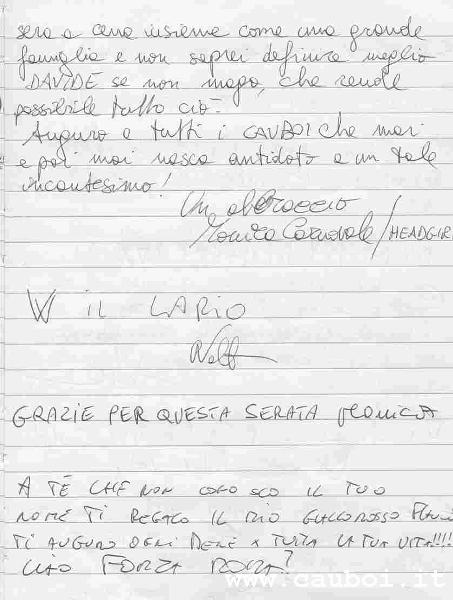 sera a cena insieme come una grande
famiglia e non saprei definire meglio
DAVIDE se non mago, che rende
possibile tutto ciò.
Auguro a tutti i CAUBOI che mai
e poi mai nasca antidoto a un tale
incantesimo!
Un abbraccio
Monica Carnovale / HEADGIR
W IL LARIO
GRAZIE PER QUESTA SERATA MONICA
A TE CHE NON CONOSCO IL TUO
NOME TI REGALO IL MIO GIALLOROSSO
TI AUGURO OGNI BENE X TUTTA LA TUA VITA!!!!
CIAO FORZA ROMA
www.cauboi.it